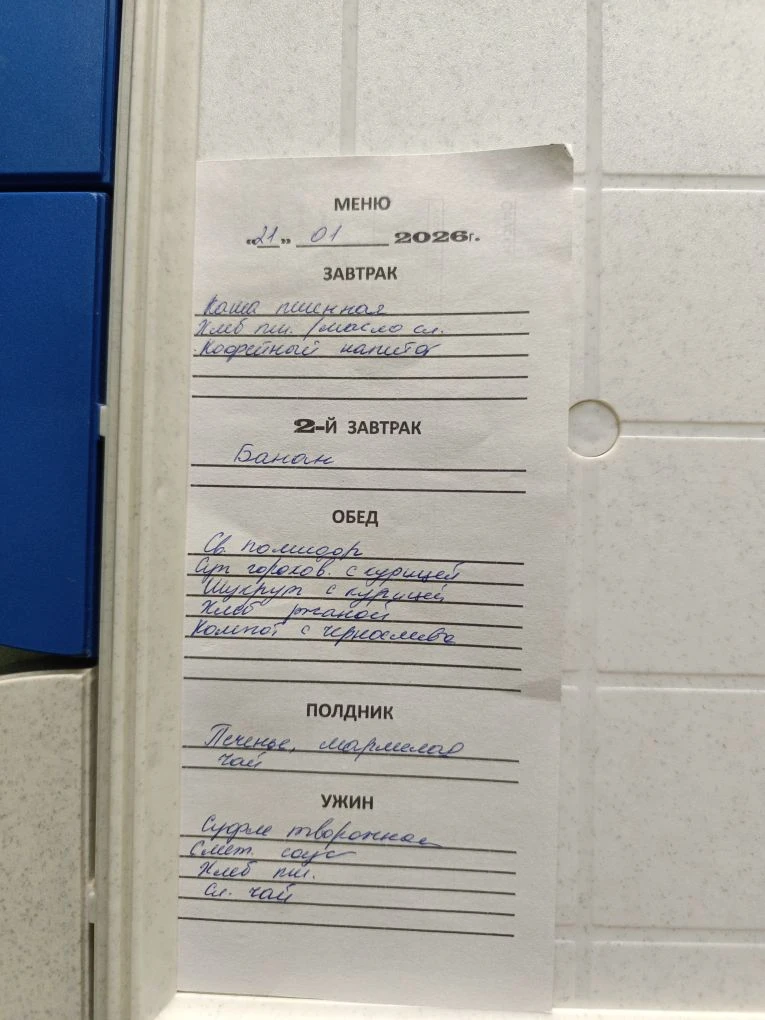 МЕНЮ
«21» 01 2026г.
ЗАВТРАК
Каша пшенная
Хлеб пш. /масло сл.
Кофейный напиток
2-Й ЗАВТРАК
Банан
ОБЕД
Св. помидор
Суп горохов. с курицей
Шукрут с курицей
Хлеб ржаной
Компот с чернослива
ПОЛДНИК
Печенье, мармелад
чай
УЖИН
Суфле творожное
Смет. соус
Хлеб пш.
Сл. чай